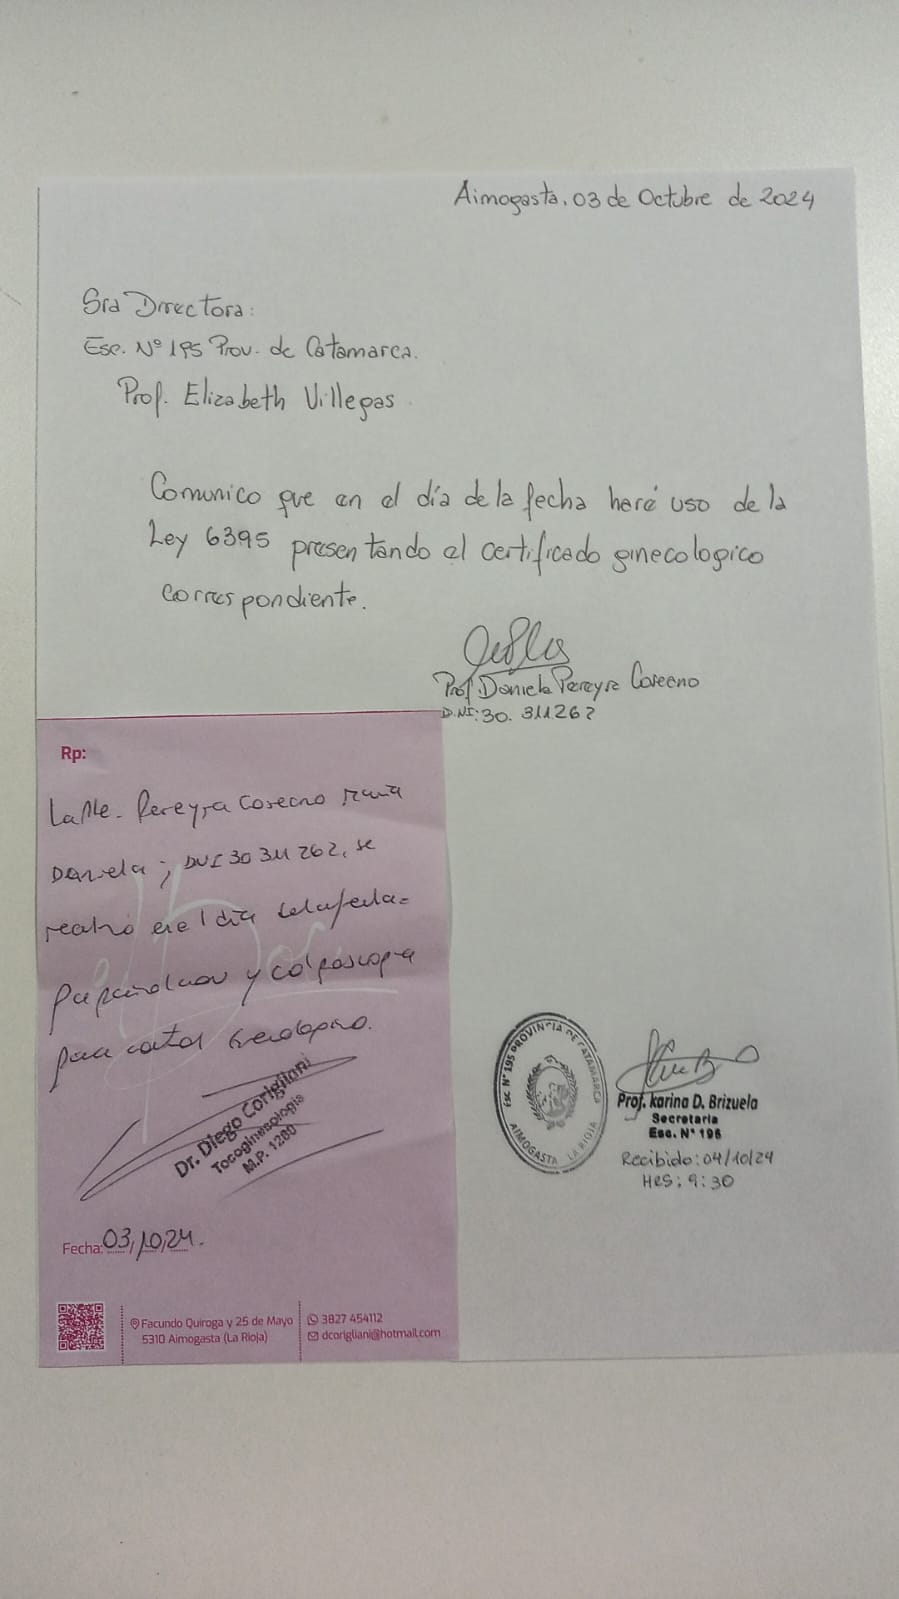 Aimogasta, 03 de Octubre de 2024
Sra Directora:
Esc. Nº 195 Prov. de Catamarca.
Prof. Elizabeth Villegas
Comunico que en el día de la fecha haré uso de la
Ley 6395 presentando el certificado ginecologico
correspondiente.
Prof. Daniela Pereyra Coseeno
D.NI: 30. 311262
Rp:
La Pte. Pereyra Coseeno María
Daniela; DNI 30 311 262, se
realizó en el día de la fecha
Papanicolaou y colposcopia
para control ginecologico.
Dr. Diego Corigliani
Tocoginecología
M.P. 1280
Fecha: 03/10/24.
Facundo Quiroga y 25 de Mayo
5310 Aimogasta (La Rioja)
3827 454112
dcorigliani@hotmail.com
Esc. Nº 195 PROVINCIA DE CATAMARCA
AIMOGASTA LA RIOJA
Prof. karina D. Brizuela
Secretaria
Esc. Nº 195
Recibido: 04/10/24
HRS: 9:30